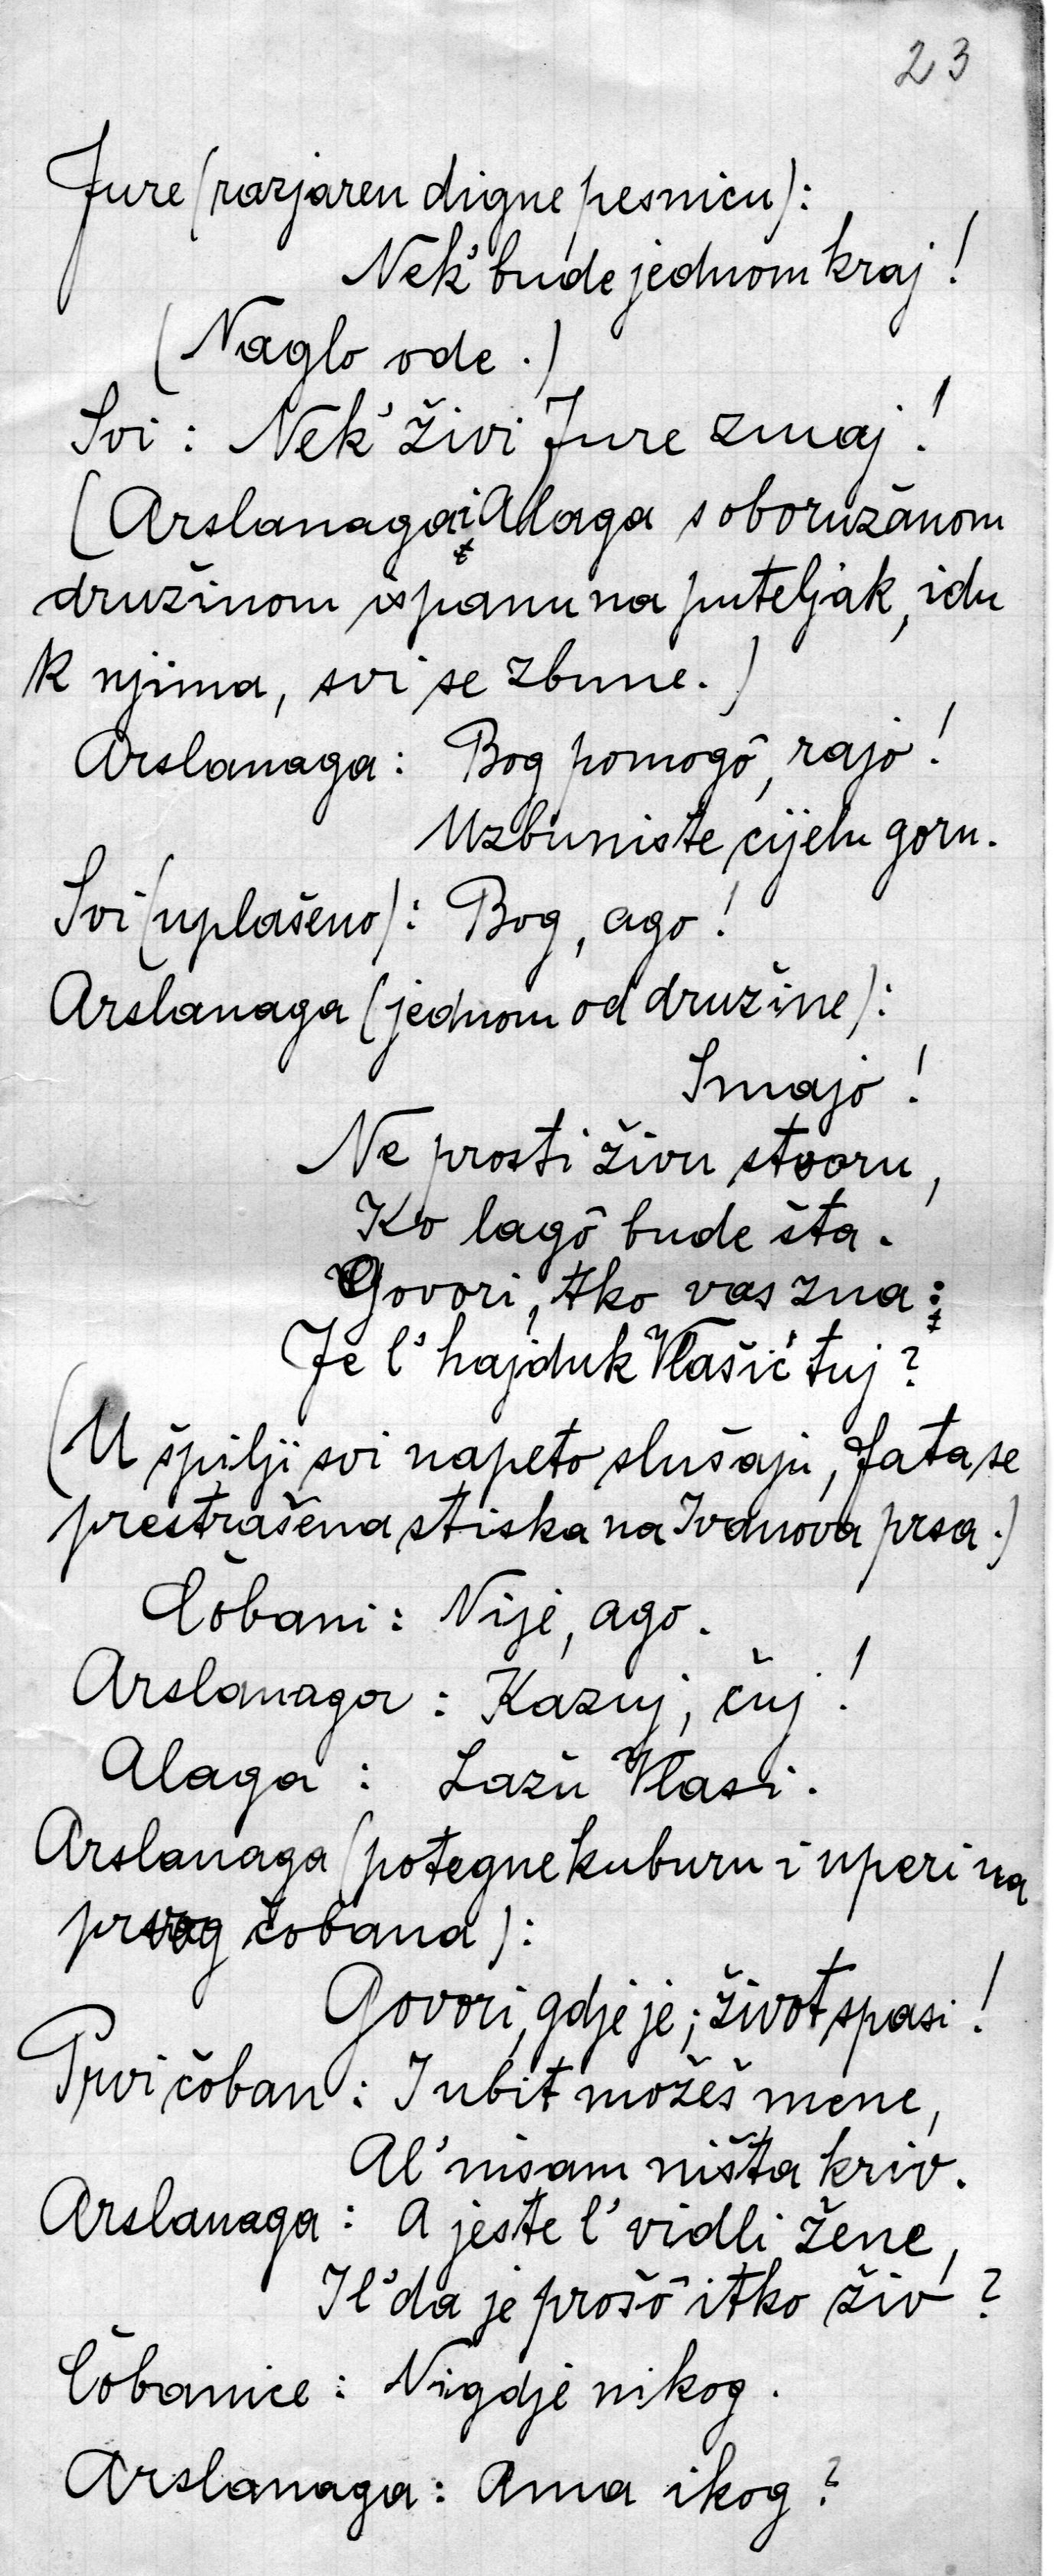 23
Jure (razjaren digne pesnicu):
Nek' bude jednom kraj!
(Naglo ode.)
Svi: Nek' živi Jure zmaj!
(Arslanaga i Alaga s oboružanom
družinom ispanu na puteljak, idu
k njima, svi se zbune.)
Arslanaga: Bog pomogô, rajo!
Uzbuniste cijelu goru.
Svi (uplašeno): Bog, ago!
Arslanaga (jednom od družine):
Smajo!
Ne prosti živu stvoru,
Ko lagô bude šta.
Govori, tko vas zna:
Je l' hajduk Vlašić tuj?
(U špilji svi napeto slušaju, Fata se
prestrašena stiska na Ivanova prsa.)
Čobani: Nije, ago.
Arslanaga: Kazuj, čuj!
Alaga: Lažu Vlasi.
Arslanaga (potegne kuburu i uperi na
prvog čobana):
Govori, gdje je; život spasi!
Prvi čoban: I ubit možeš mene,
Al' nisam ništa kriv.
Arslanaga: A jeste l' vidli žene,
Il' da je prošô itko živ?
Čobanice: Nigdje nikog.
Arslanaga: Ama ikog?